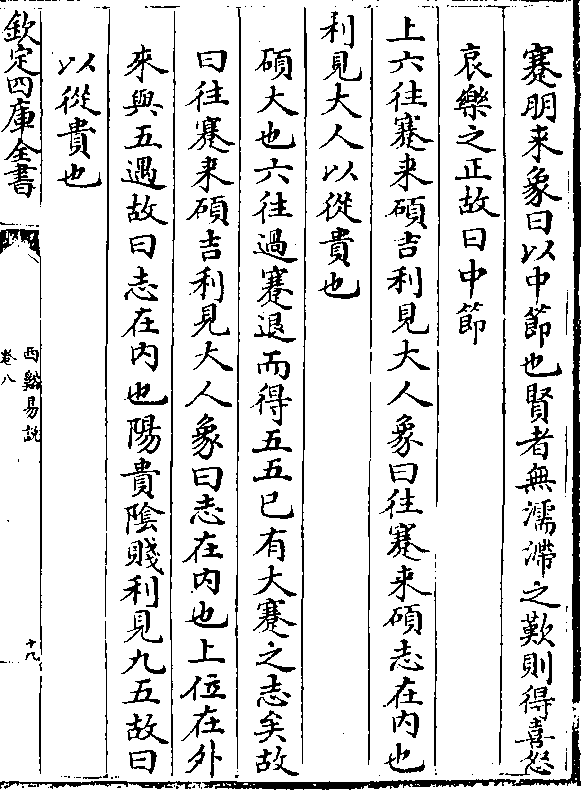 蹇朋来象曰以中節也賢者無濡滯之歎則得喜怒
哀樂之正故曰中節
上六往蹇来碩吉利見大人象曰往蹇来碩志在内也
利見大人以從貴也
碩大也六往過蹇退而得五五已有大蹇之志矣故
曰往蹇来碩吉利見大人象曰志在内也上位在外
來與五遇故曰志在内也陽貴陰賤利見九五故曰
以從貴也
欽定四庫全書
西谿易說
卷八
十九